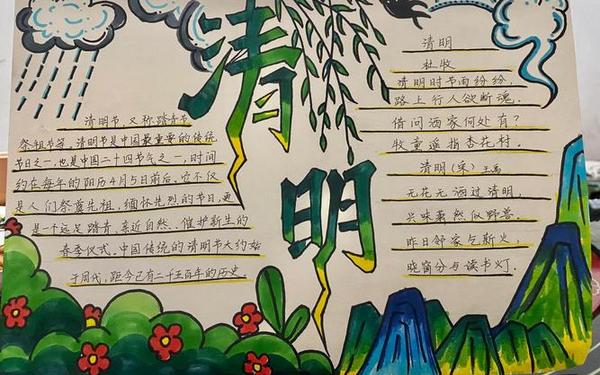 清明
清明节,又称踏青节
祭祖节等。清明节是中国最重要的传统
节日之一,也是中国二十四节气之一,时间
约在每年的阳历4月5日前后。它不仅
是人们祭首先祖、缅怀先烈的节日,更
是一个远足踏青、亲近自然、催护新生的
春季仪式。中国传统的清明节大约始
于周代,距今已有二千五百年的历史。
清明
杜牧
清明时节雨纷纷,
路上行人欲断魂。
借问酒家何处有?
牧童遥指杏花村。
清明(宋)王禹
无花无酒过清明,
兴味萧然似野僧。
昨日邻家乞新火,
晓窗分与读书灯.